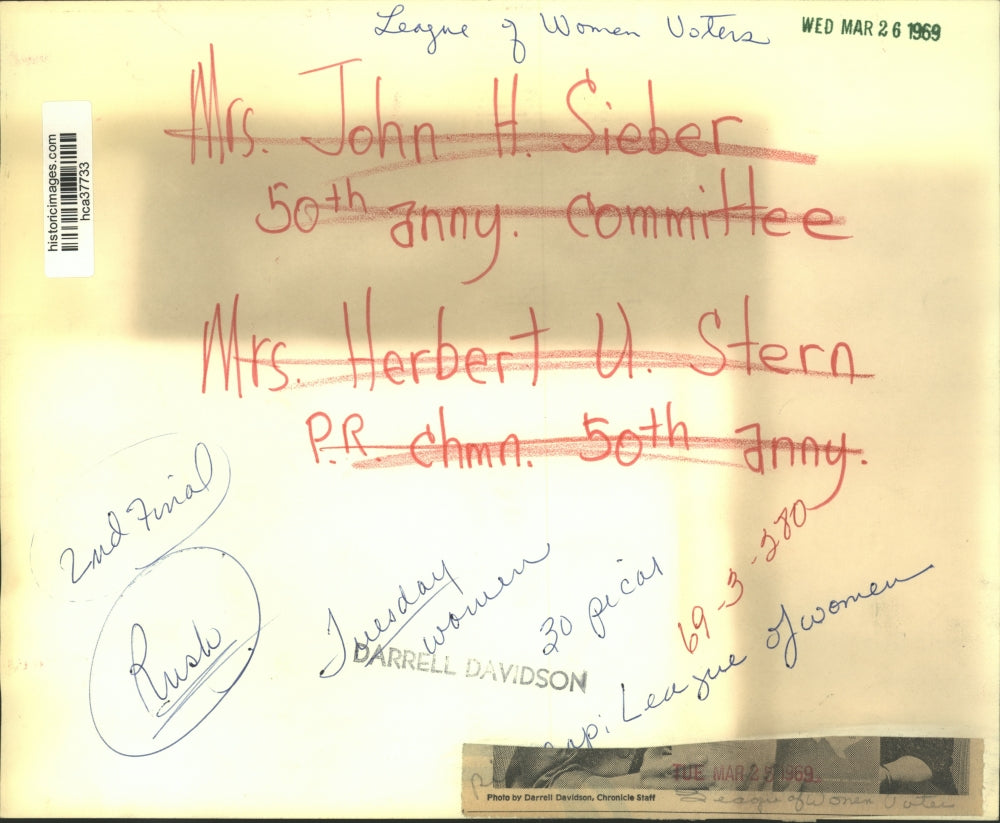 League of Women Voters
WED MAR 26 1969
Mrs. John H. Sieber
50th anny. committee
historicimages.com
hca37733
Mrs. Herbert U. Stern
P.R. chmn. 50th anny.
2nd Final
Rush
Tuesday
women
30 picas
69-3-280
DARRELL DAVIDSON
cap: League of women
TUE MAR 25 1969
Photo by Darrell Davidson, Chronicle Staff
League of Women Voters